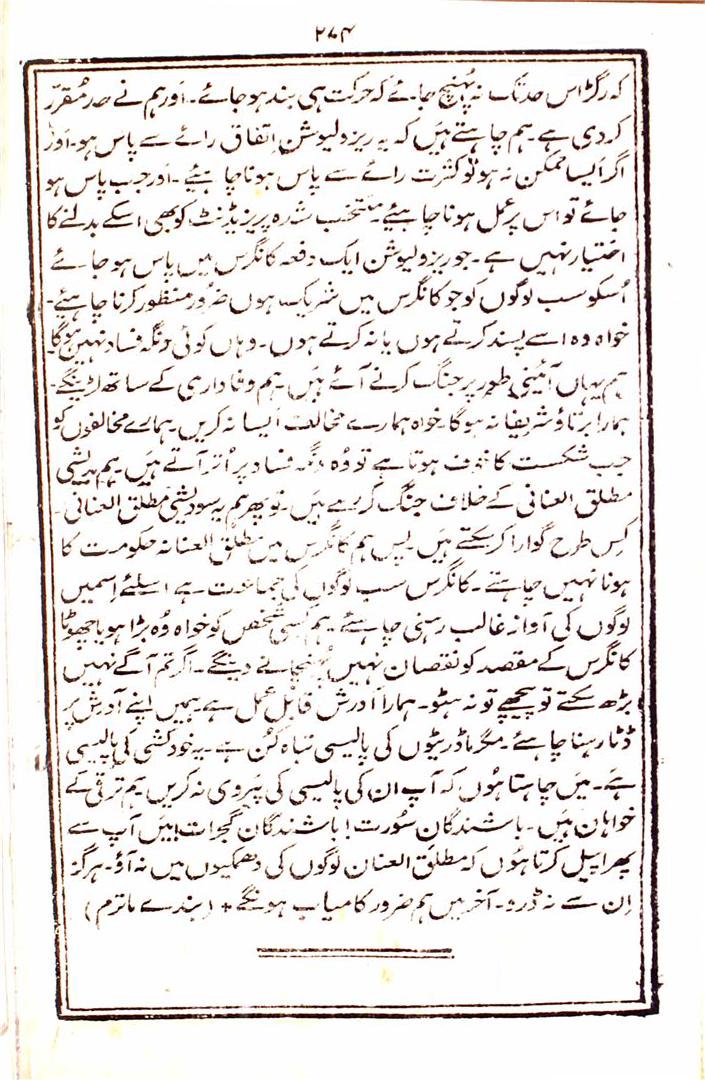 ۲۷۴
کہ رگڑ اس حد تک نہ پہنچ جائے کہ حرکت ہی بند ہو جائے۔ اَور ہم نے حد مُقرّر
کر دی ہے۔ ہم چاہتے ہَیں کہ یہ ریزولیوشن اِتفاق رائے سے پاس ہو۔ اَور
اگر اَیسا ممکن نہ ہو تو کثرت رائے سے پاس ہونا چاہئیے۔ اَور جب پاس ہو
جائے تو اس پر عمل ہونا چاہیئے۔ منتخب شدہ پریزیڈنٹ کو بھی اسکے بدلنے کا
اختیار نہیں ہے۔ جو ریزولیوشن ایک دفعہ کانگرس میں پاس ہو جائے
اُسکو سب لوگوں کو جو کانگرس میں شریک ہوں ضرور منظور کرنا چاہئے۔
خواہ وہ اسے پسند کرتے ہوں یا نہ کرتے ہوں۔ وہاں کوئی دنگہ فساد نہیں ہوگا
ہم یہاں آئینی طور پر جنگ کرنے آئے ہَیں۔ ہم وفاداری کے ساتھ لڑینگے۔
ہمارا برتاؤ شریفانہ ہوگا۔ خواہ ہمارے مخالف اَیسا نہ کریں۔ ہمارے مخالفوں کو
جب شکست کا خوف ہوتا ہے تو وُہ دنگہ فساد پر اُتر آتے ہَیں۔ ہم بدیشی
مطلق العنانی کے خلاف جنگ کر رہے ہَیں۔ تو پھر ہم یہ سودیشی مطلق العنانی۔
کِس طرح گوارا کر سکتے ہَیں۔ پس ہم کانگرس میں مطلق العنانہ حکومت کا
ہونا نہیں چاہتے۔ کانگرس سب لوگوں کی جماعت ہے اسلئے اِسمیں
لوگوں کی آواز غالب رہنی چاہئے۔ ہم کسی شخص کو خواہ وُہ بڑا ہو یا چھوٹا
کانگرس کے مقصد کو نقصان نہیں پُہنچانے دینگے۔ اگر تم آگے نہیں
بڑھ سکتے تو پیچھے تو نہ ہٹو۔ ہمارا آدرش قابل عمل ہے۔ ہمیں اپنے آدرش پر
ڈٹا رہنا چاہئے۔ مگر ماڈریٹوں کی پالیسی تباہ کُن ہے۔ یہ خودکشی کی پالیسی
ہے۔ میں چاہتا ہُوں کہ آپ ان کی پالیسی کی پَیروی نہ کریں۔ ہم ترقی کے
خواہاں ہَیں۔ باشندگان سُورت! باشندگان گجرات! میں آپ سے
پھر اپیل کرتا ہُوں کہ مطلق العنان لوگوں کی دھمکیوں میں نہ آؤ۔ ہرگز
اِن سے نہ ڈرو۔ آخر میں ہم ضرور کامیاب ہونگے + (بندے ماترم)